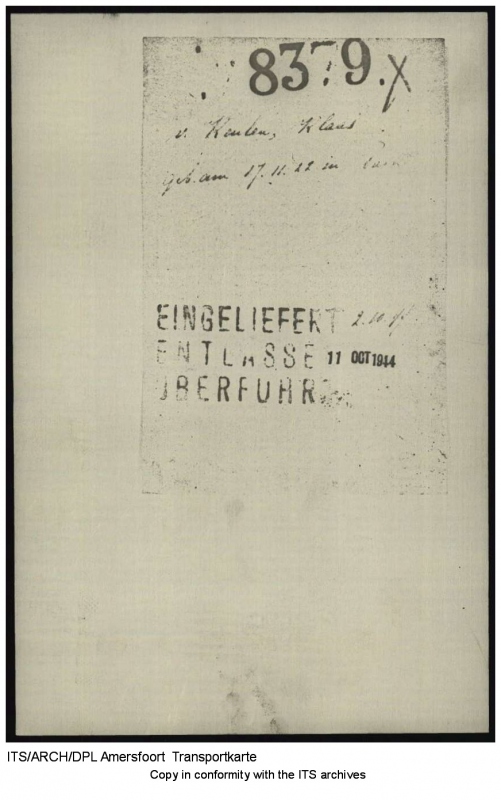 8379. X
v. Keulen, Klaas
geb. am 17.11.22 in
EINGELIEFERT 2.10.
ENTLASSE 11 OCT 1944
ÜBERFÜHR
ITS/ARCH/DPL Amersfoort Transportkarte
Copy in conformity with the ITS archives